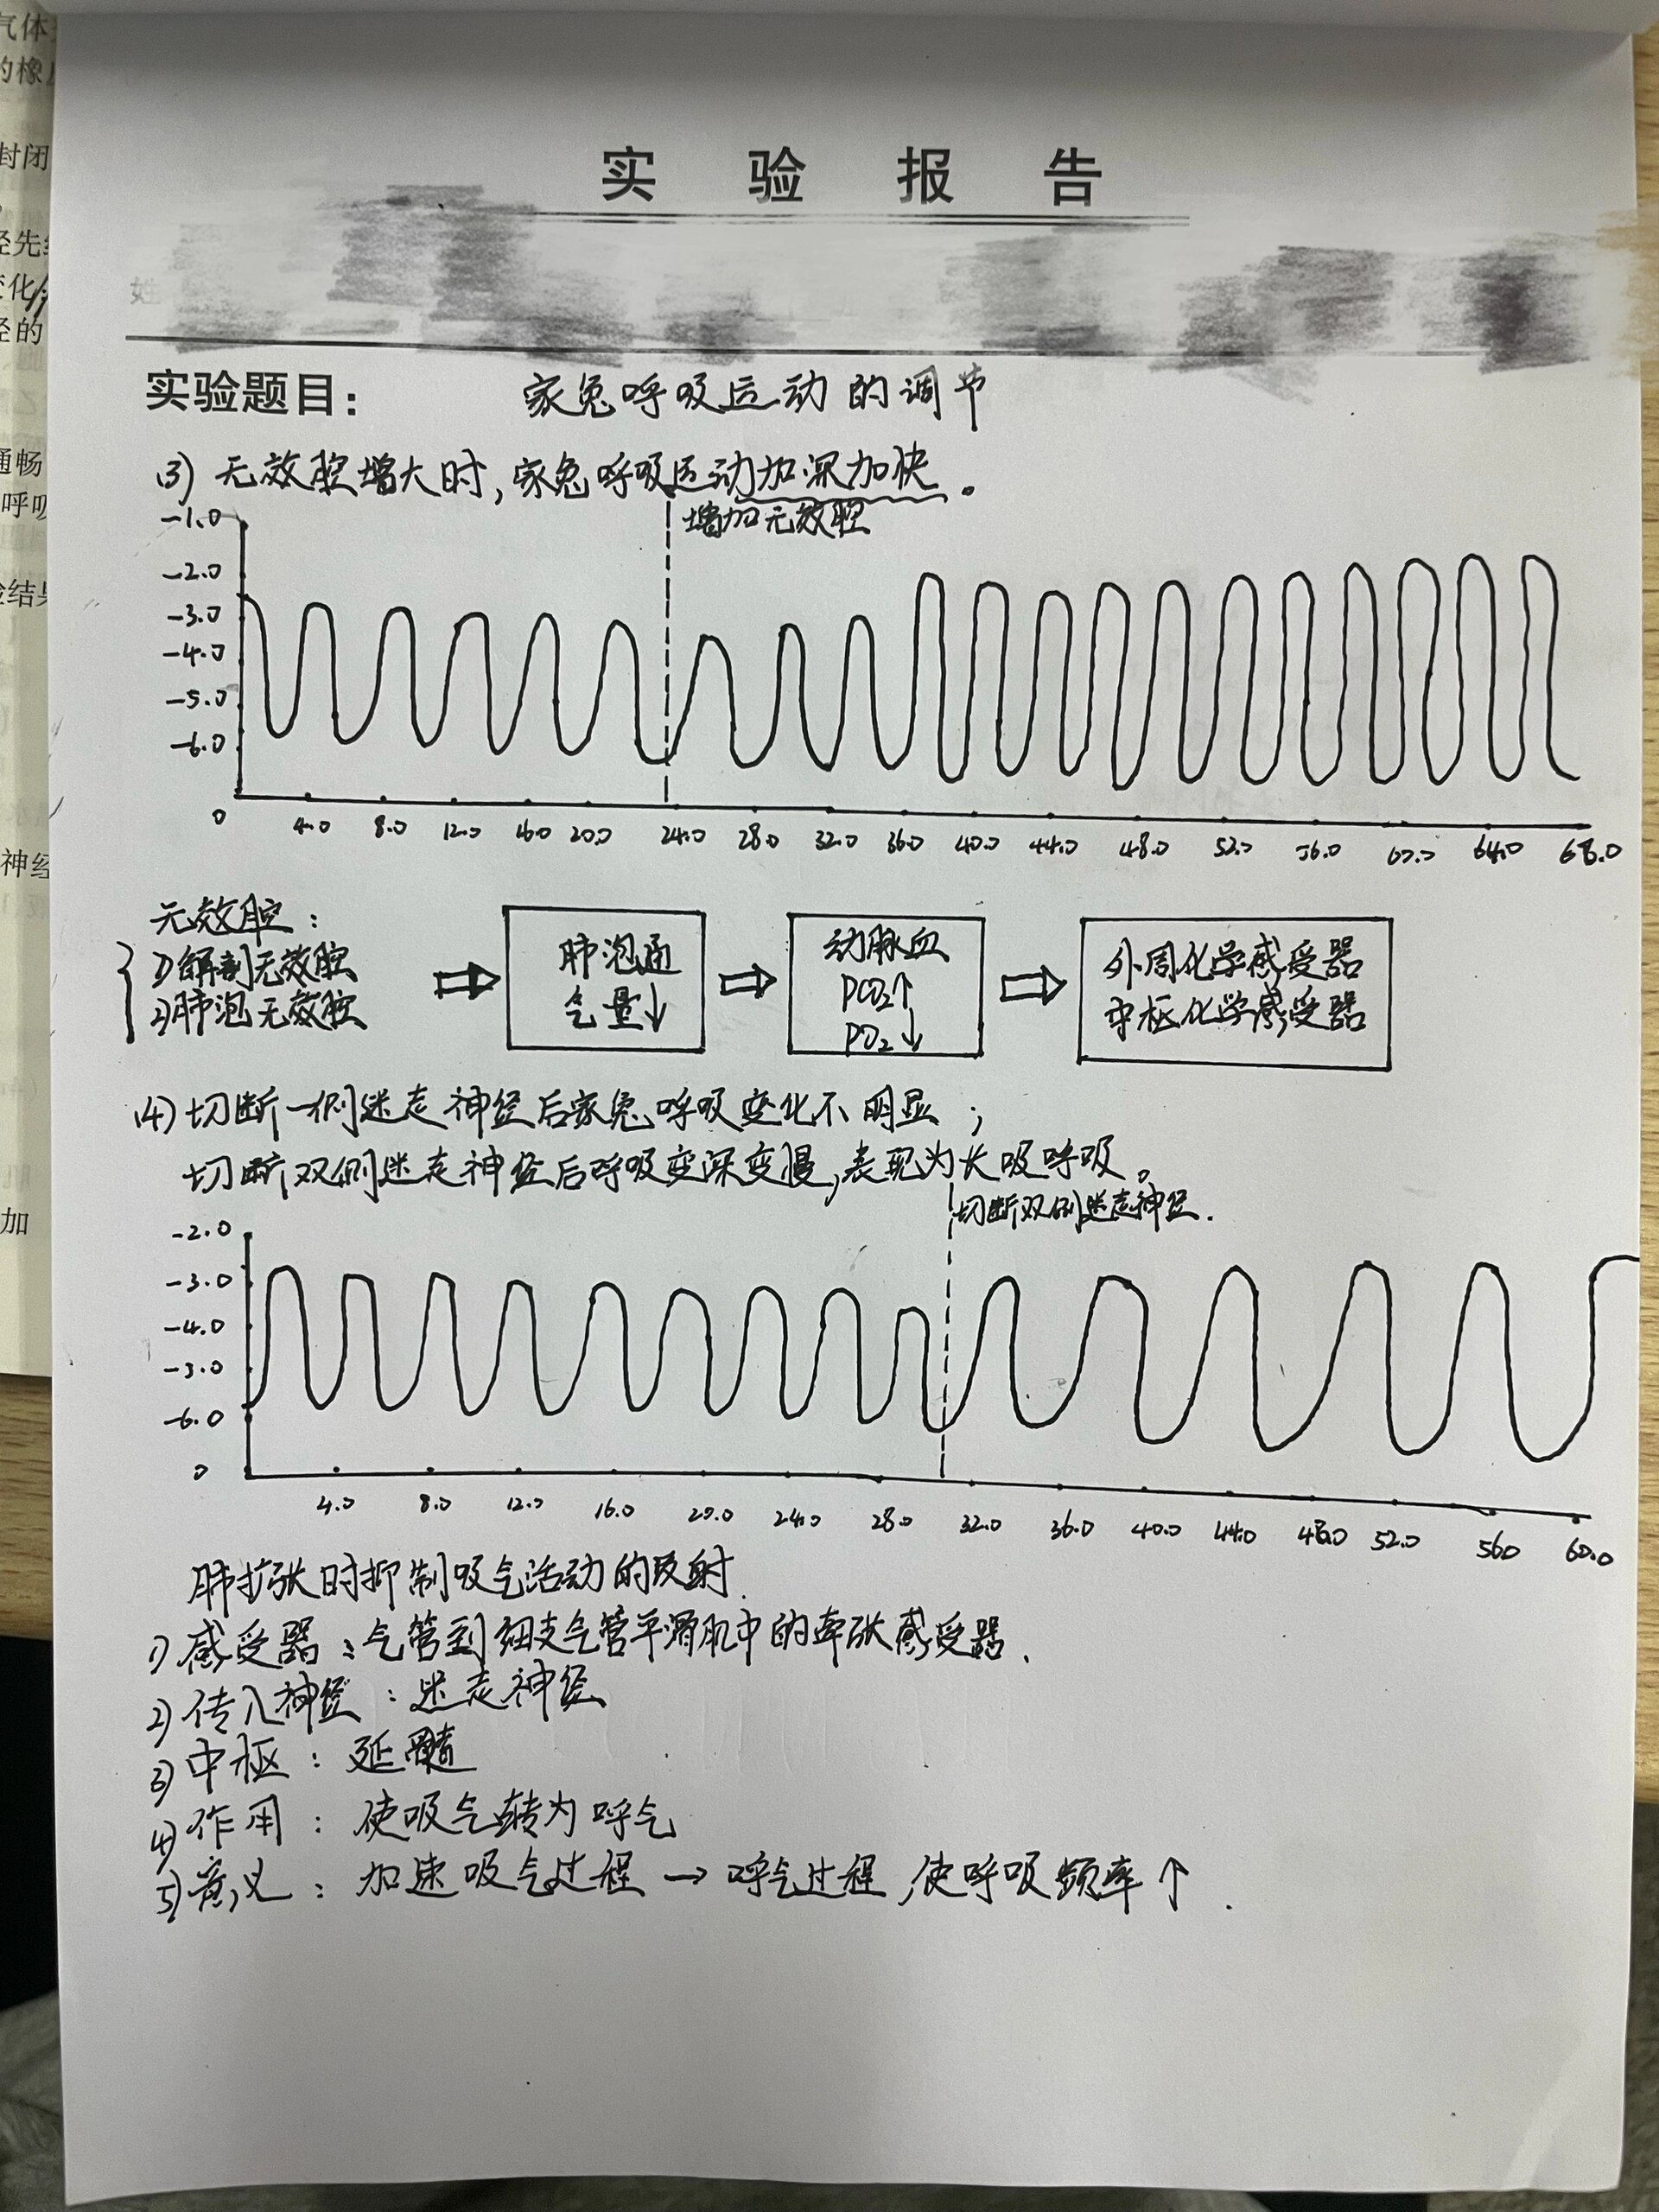 实验报告
姓
实验题目：家兔呼吸运动的调节
(3) 无效腔增大时,家兔呼吸运动加深加快。
增加无效腔
-1.0
-2.0
-3.0
-4.0
-5.0
-6.0
0 4.0 8.0 12.0 16.0 20.0 24.0 28.0 32.0 36.0 40.0 44.0 48.0 52.0 56.0 60.0 64.0 68.0
无效腔：
1)解剖无效腔
2)肺泡无效腔
肺泡通
气量↓
动脉血
PCO₂↑
PO₂↓
外周化学感受器
中枢化学感受器
(4) 切断一侧迷走神经后家兔呼吸变化不明显；
切断双侧迷走神经后呼吸变深变慢,表现为长吸呼吸。
切断双侧迷走神经.
-2.0
-3.0
-4.0
-5.0
-6.0
0
4.0 8.0 12.0 16.0 20.0 24.0 28.0 32.0 36.0 40.0 44.0 48.0 52.0 56.0 60.0
肺扩张时抑制吸气活动的反射.
1) 感受器：气管到细支气管平滑肌中的牵张感受器.
2) 传入神经：迷走神经
3) 中枢：延髓
4) 作用：使吸气转为呼气
5) 意义：加速吸气过程→呼气过程,使呼吸频率↑.
气体
的橡
封闭
径先
变化
径的
通畅
呼吸
验结果
神经
加